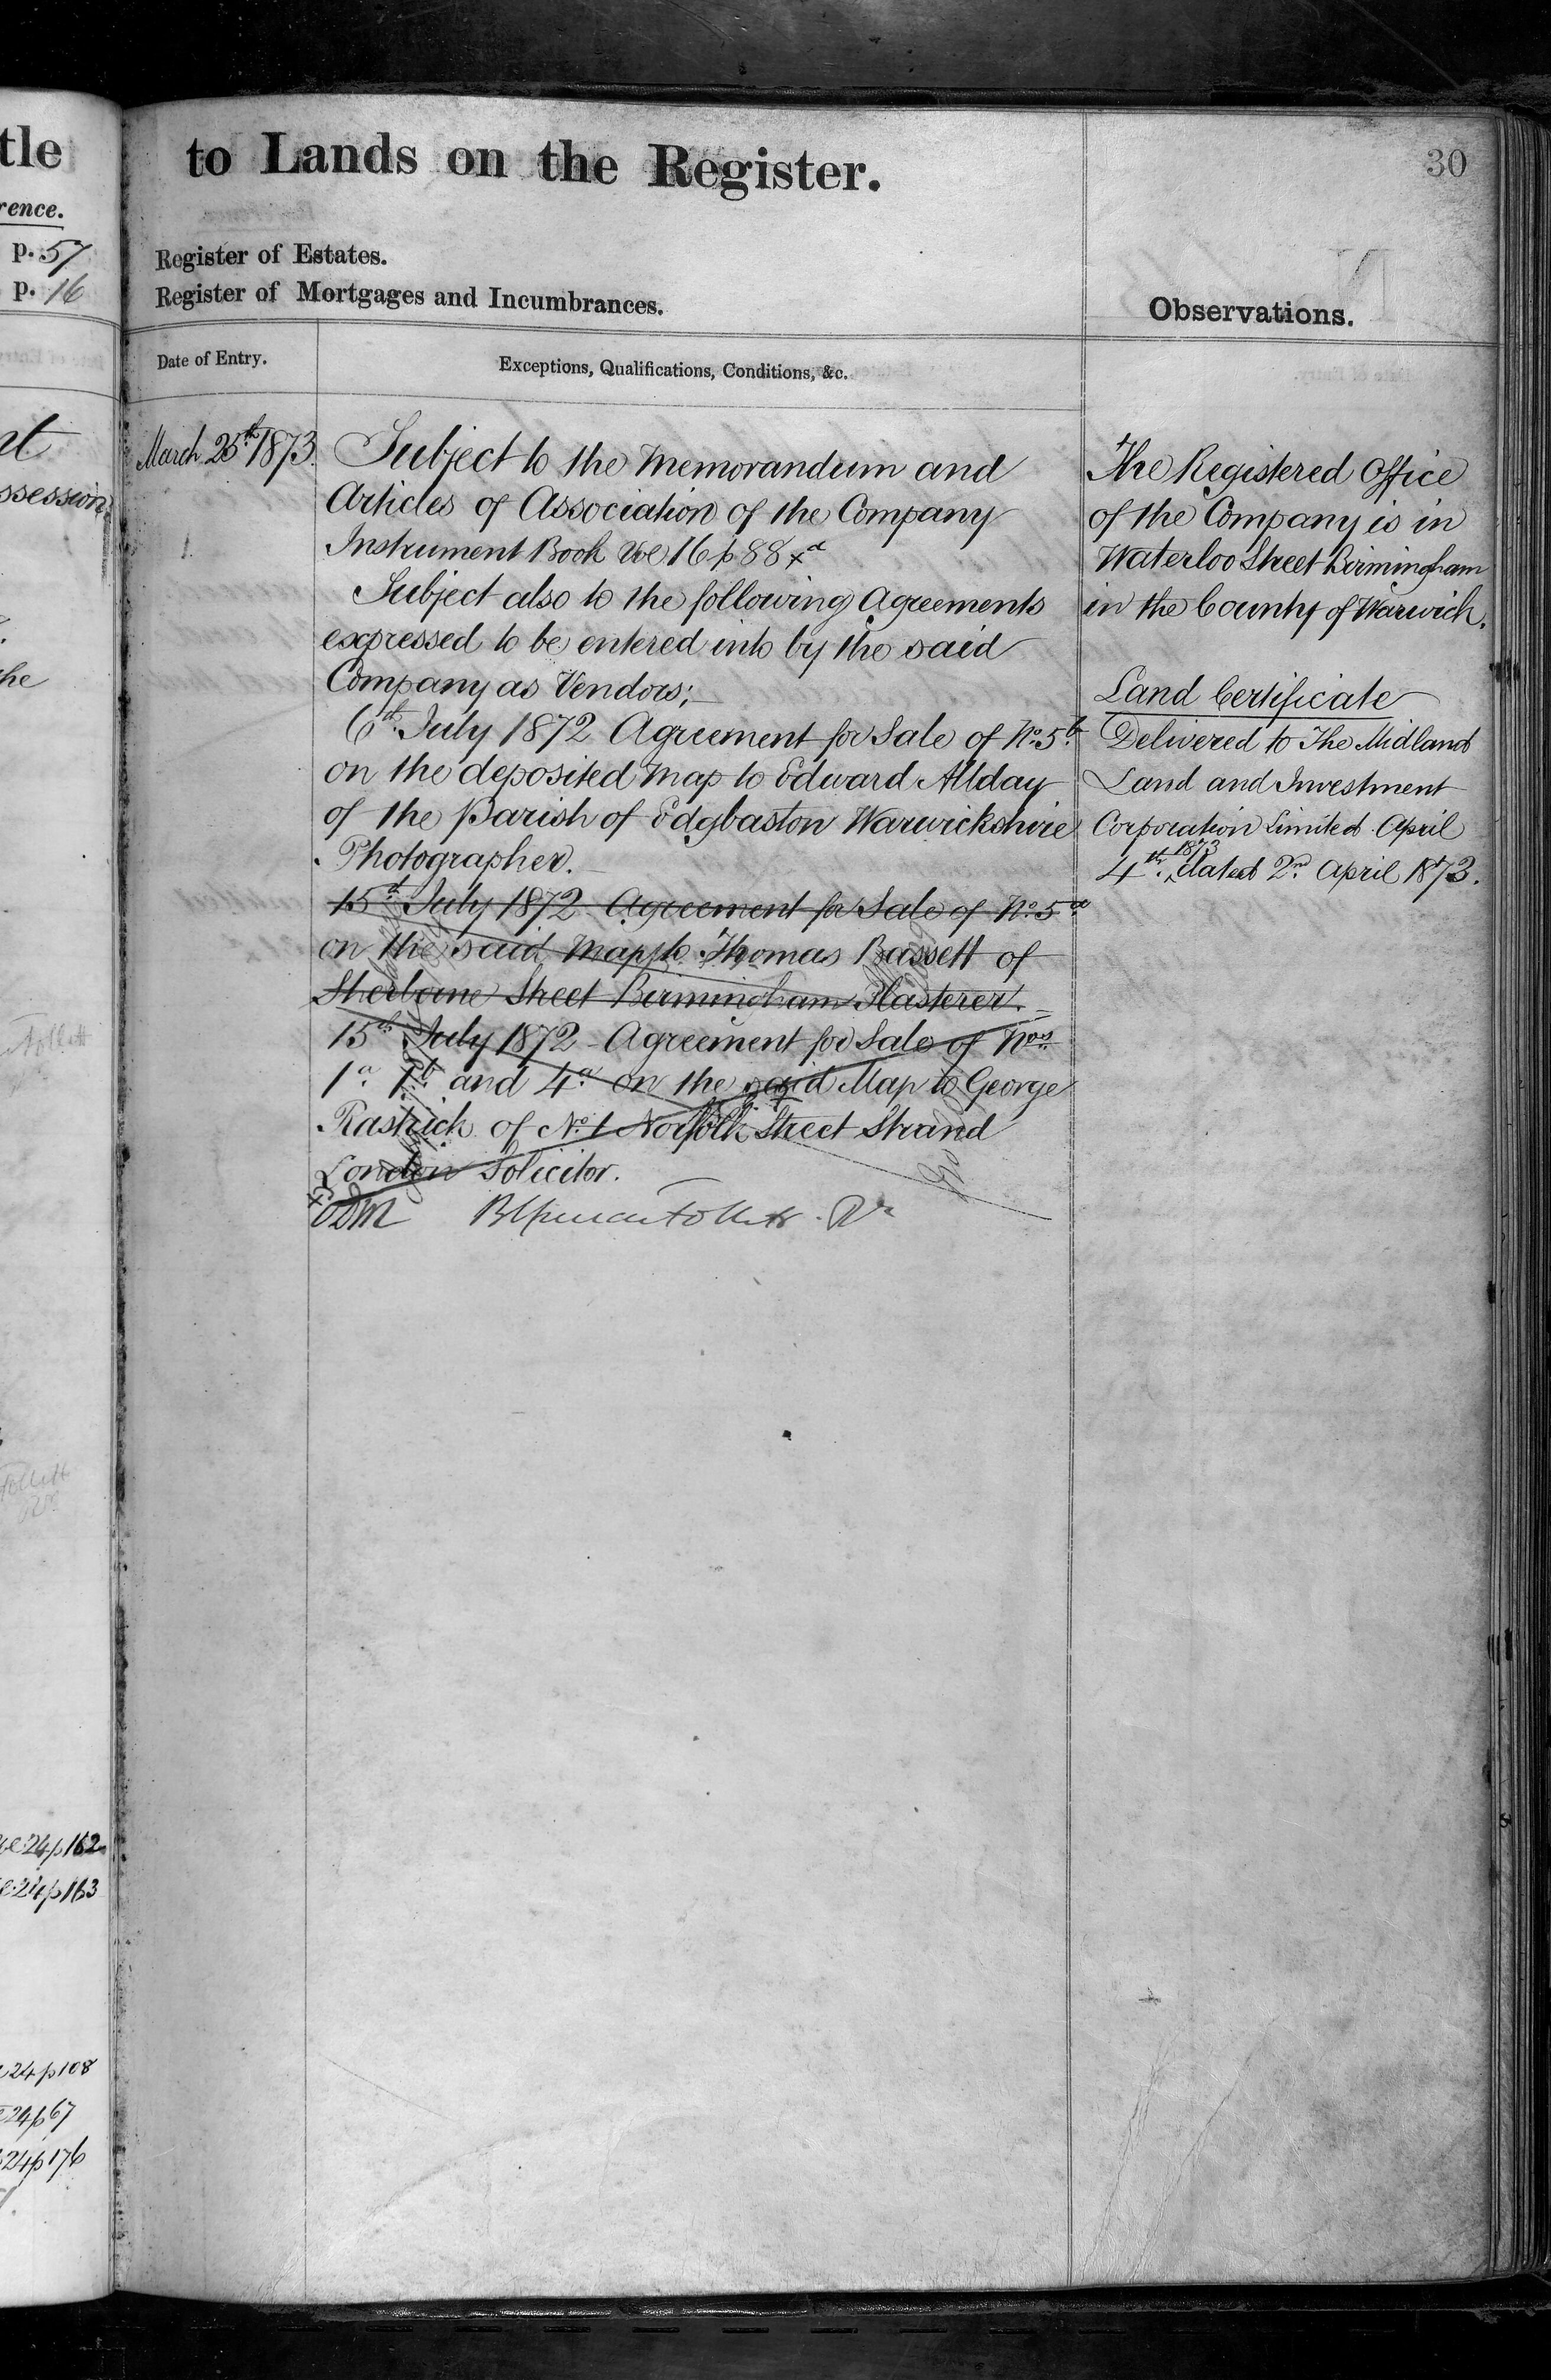 tle
rence.
p. 57
p. 16
ssession
he
24 p 162
24 p 163
24 p 108
24 p 67
24 p 176
to Lands on the Register.
30
Register of Estates.
Register of Mortgages and Incumbrances.
Observations.
Date of Entry.
Exceptions, Qualifications, Conditions, &c.
March 25th 1873.
1.
Subject to the Memorandum and
Articles of Association of the Company
Instrument Book Vol 16 p 88
Subject also to the following Agreements
expressed to be entered into by the said
Company as Vendors;
6th July 1872 Agreement for Sale of No. 5b
on the deposited Map to Edward Allday
of the Parish of Edgbaston Warwickshire
Photographer.
15th July 1872 Agreement for Sale of No. 5a
on the said Map to Thomas Bassett of
Sherborne Street Birmingham Plasterer.
15th July 1872 Agreement for Sale of Nos.
1a 1b and 4a on the said Map to George
Rastrick of No. 1 Norfolk Street Strand
London Solicitor.
The Registered Office
of the Company is in
Waterloo Street Birmingham
in the County of Warwick.
Land Certificate
Delivered to The Midland
Land and Investment
Corporation Limited April
4th 1873 dated 2nd April 1873.